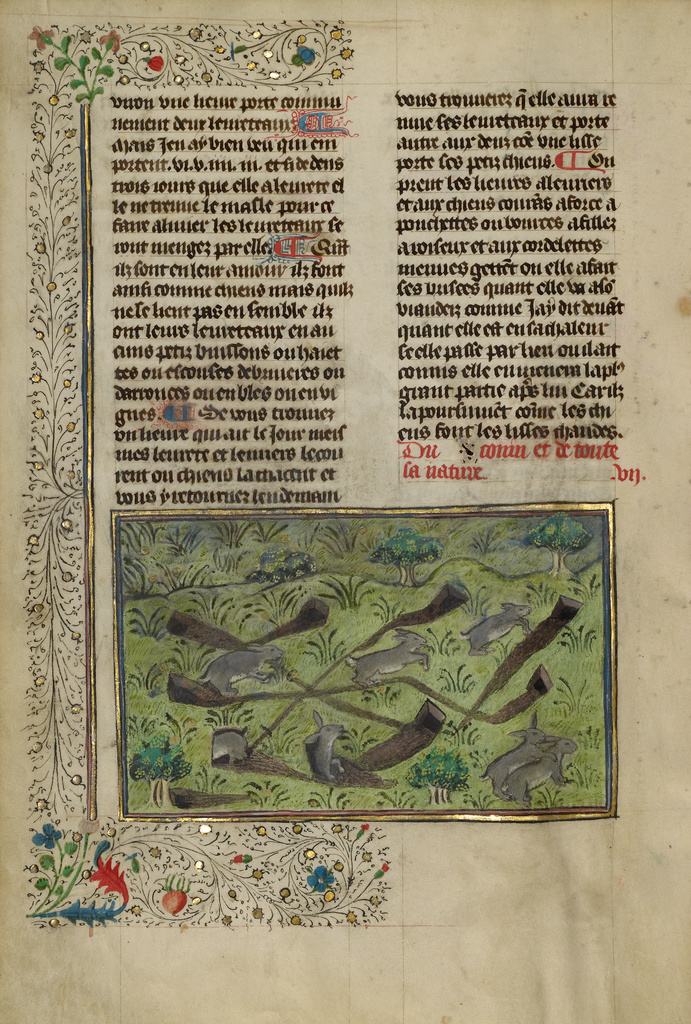 uiron vne lieure porte commu
nement deux leureteaux
Mais Jen ay bien veu qui em
portent .vi.v.iiii. iii. et se dedens
trois iours que elle a leurete el
le ne treuue le masle pour ce
faire aluiier les leureteaux se
ront mengez par elle. Quāt
ilz sont en leur amour ilz font
ainsi comme chiens mais quilz
ne se lient pas ensemble ilz
ont leurs leureteaux en au
cuns petiz buissons ou haiet
tes ou escouses de bruieres ou
darronces ou en bles ou en vi
gnes. Se vous trouuez
vn lieure qui ait le Jour meis
mes leurete et leuriers le cou
rent ou chiens la chacent et
vous y retournez lendemain
vous trouuerez q̄ elle aura re
mue ses leureteaux et porte
autre aux deux cōe vne lisse
porte ses petiz chiens. On
prent les lieures a leuriers
et aux chiens courās a force a
pouchettes ou bources a fillez
a roiseux et aux cordelettes
menues gettēt ou elle a fait
ses busees quant elle va a so
viandeiz comme Jay dit deuāt
quant elle est en sa chaleur
se elle passe par lieu ou il ait
connis elle enmenera la pl9
grant partie apꝭ lui Car ilz
la poursuiuēt cōme les chi
ens font les lisses chaudes.
Du conin et de toute
sa nature. .vij.